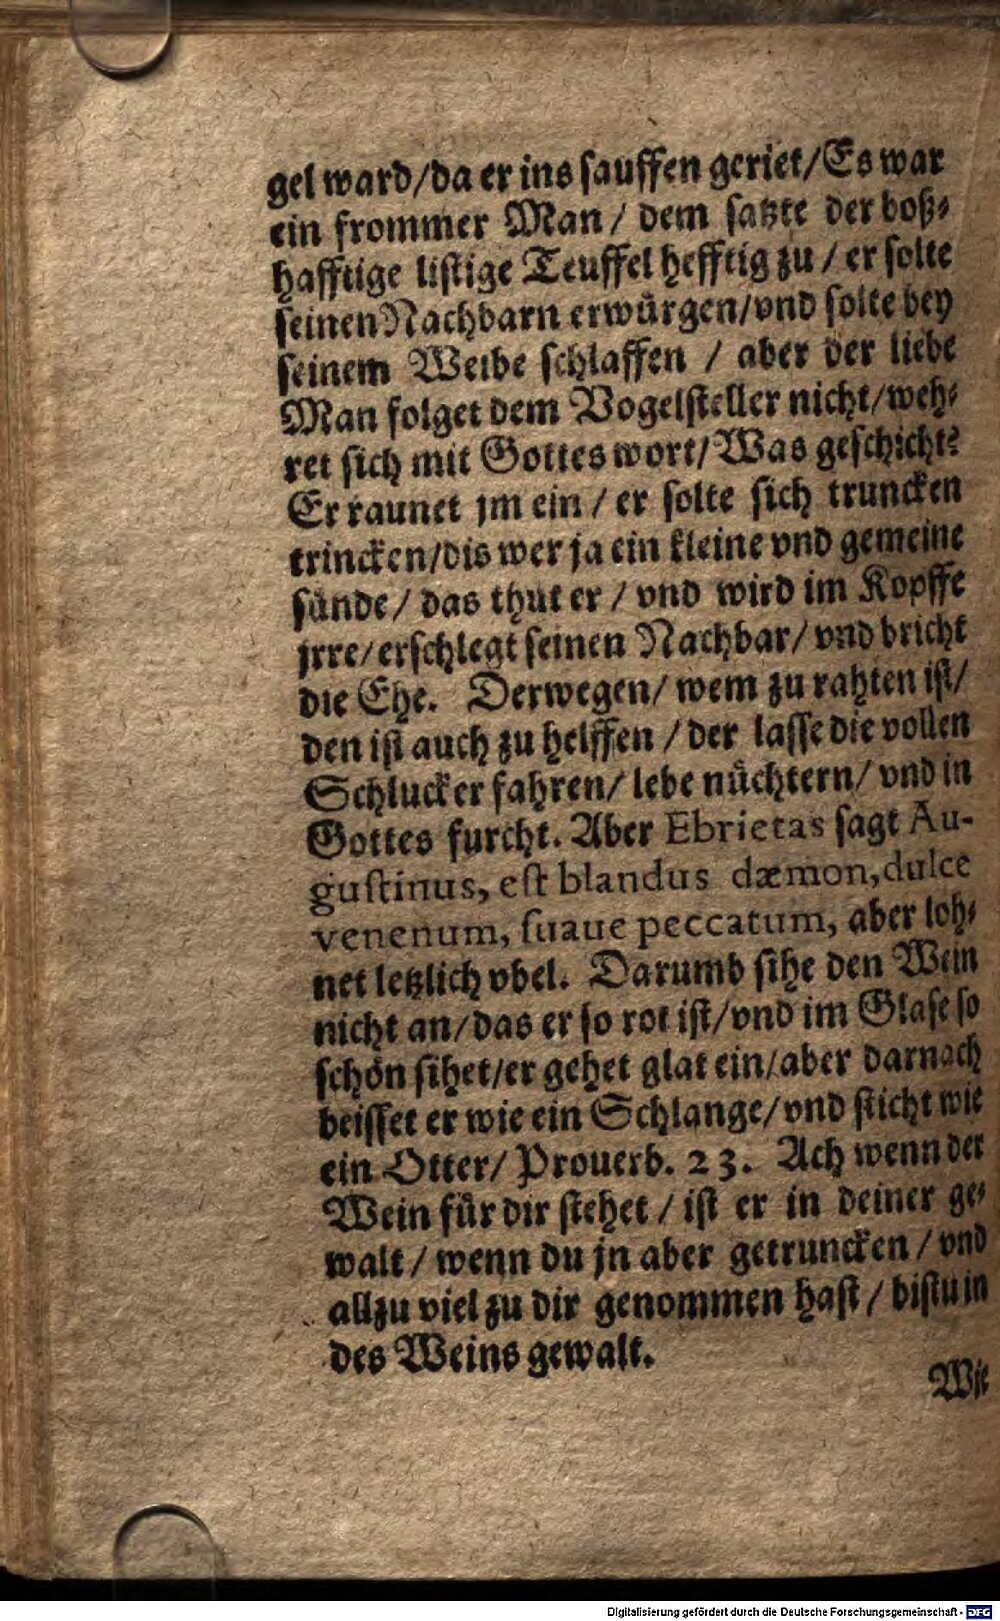 gel ward/da er ins sauffen geriet/Es war
ein frommer Man/ dem satzte der boß⸗
hafftige listige Teuffel hefftig zu/ er solte
seinen Nachbarn erwuͤrgen/vnd solte bey
seinem Weibe schlaffen / aber der liebe
Man folget dem Vogelsteller nicht/weh⸗
ret sich mit Gottes wort/Was geschicht?
Er raunet jm ein/ er solte sich truncken
trincken/dis wer ja ein kleine vnd gemeine
suͤnde/ das thut er/ vnd wird im Kopffe
jrre/erschlegt seinen Nachbar/ vnd bricht
die Ehe. Derwegen/ wem zu rahten ist/
den ist auch zu helffen/der lasse die vollen
Schlucker fahren/ lebe nuͤchtern/ vnd in
Gottes furcht. Aber Ebrietas sagt Au-
gustinus, est blandus dæmon, dulce
venenum, suaue peccatum, aber loh⸗
net letzlich vbel. Darumb sihe den Wein
nicht an/das er so rot ist/vnd im Glase so
schoͤn sihet/er gehet glat ein/aber darnach
beisset er wie ein Schlange/vnd sticht wie
ein Otter/ Prouerb. 23. Ach wenn der
Wein fuͤr dir stehet/ ist er in deiner ge⸗
walt/wenn du jn aber getruncken/vnd
allzu viel zu dir genommen hast/ bistu in
des Weins gewalt.
Wie
Digitalisierung gefördert durch die Deutsche Forschungsgemeinschaft - DFG